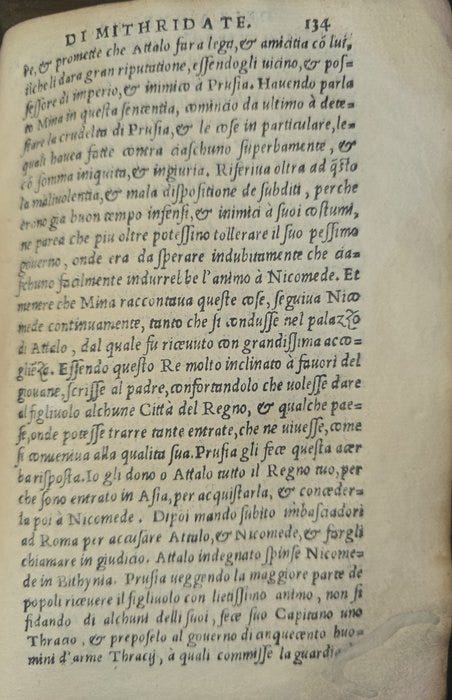 DI MITHRIDATE. 134
pe, & promette che Attalo fara lega, & amicitia cō lui,
ilche li dara gran riputatione, essendogli uicino, & pos=
sessore di imperio, & inimico à Prusia. Hauendo parla
to Mina in questa sententia, comincio da ultimo à dete=
stare la crudelta di Prusia, & le cose in particulare, le=
quali hauea fatte contra ciaschuno superbamente, &
cō somma iniquita, & ingiuria. Riferiua oltra ad q̄sto
la maliuolentia, & mala dispositione de subditi, perche
erono gia buon tempo infensi, & inimici à suoi costumi,
ne parea che piu oltre potessino tollerare il suo pessimo
gouerno, onde era da sperare indubitamente che cia=
schuno facilmente indurrebbe l'animo à Nicomede. Et
menere che Mina raccontaua queste cose, seguiua Nico
mede continuamente, tanto che si condusse nel palazzo
di Attalo, dal quale fu riceuuto con grandissima acco=
gliēza. Essendo questo Re molto inclinato à fauori del
giouane, scrisse al padre, confortandolo che uolesse dare
al figliuolo alchune Città del Regno, & qualche pae=
se, onde potesse trarre tante entrate, che ne uiuesse, come
si conueniua alla qualita sua. Prusia gli fece questa acer
ba risposta. Io gli dono o Attalo tutto il Regno tuo, per
che sono entrato in Asia, per acquistarla, & conceder=
la poi à Nicomede. Dipoi mando subito imbasciadori
ad Roma per accusare Attalo, & Nicomede, & fargli
chiamare in giudicio. Attalo indegnato spinse Nicome=
de in Bithynia. Prusia ueggendo la maggiore parte de
popoli riceuere il figliuolo con lietissimo animo, non si
fidando di alchuni delli suoi, fece suo Capitano uno
Thracio, & preposelo al gouerno di cinquecento huo=
mini d'arme Thracij, à quali commisse la guardia